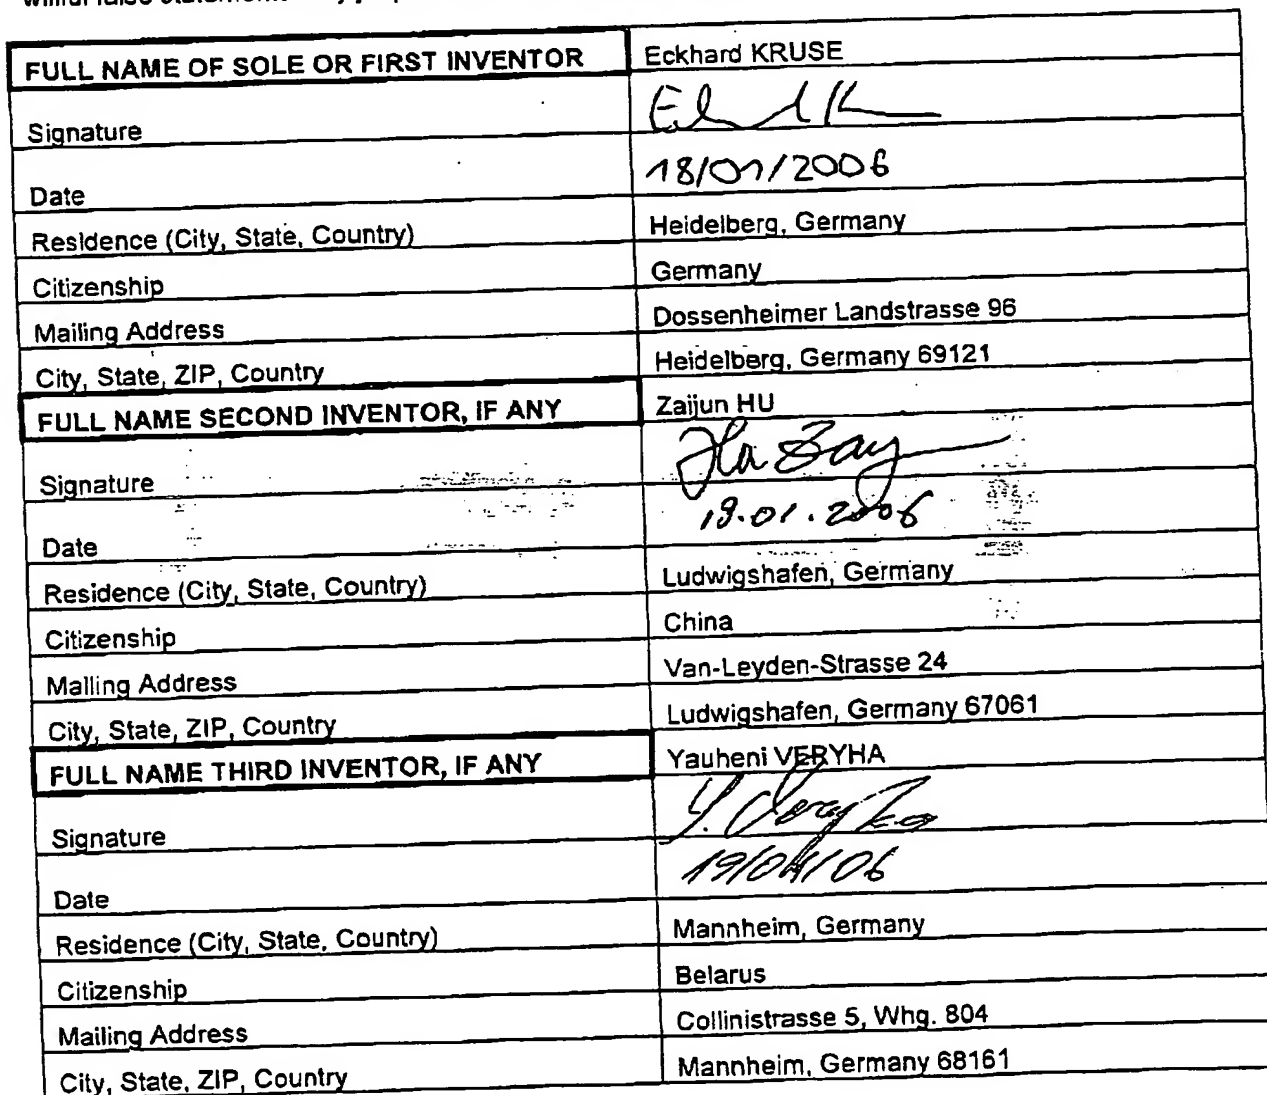 willful false statements may jeop
FULL NAME OF SOLE OR FIRST INVENTOR Eckhard KRUSE
Signature
Date 18/01/2006
Residence (City, State, Country) Heidelberg, Germany
Citizenship Germany
Mailing Address Dossenheimer Landstrasse 96
City, State, ZIP, Country Heidelberg, Germany 69121
FULL NAME SECOND INVENTOR, IF ANY Zaijun HU
Signature
Date .01.2006
Residence (City, State, Country) Ludwigshafen, Germany
Citizenship China
Mailing Address Van-Leyden-Strasse 24
City, State, ZIP, Country Ludwigshafen, Germany 67061
FULL NAME THIRD INVENTOR, IF ANY Yauheni VERYHA
Signature Y. Veryha
Date
Residence (City, State, Country) Mannheim, Germany
Citizenship Belarus
Mailing Address Collinistrasse 5, Whg. 804
City, State, ZIP, Country Mannheim, Germany 68161